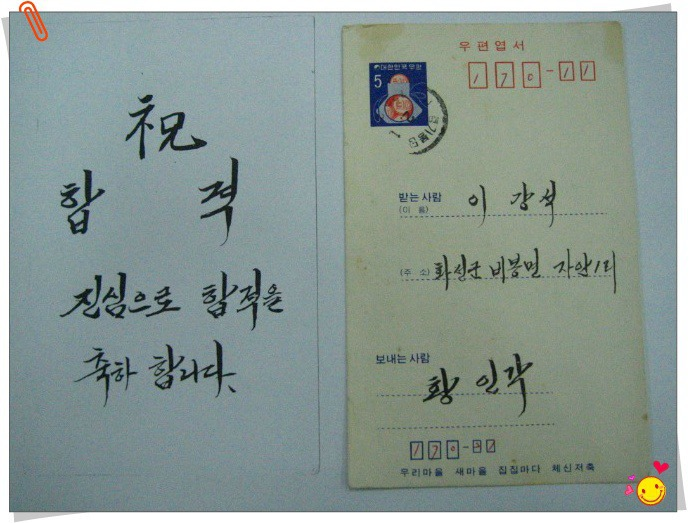 祝
합 격
진심으로 합격을
축하 합니다.
우편엽서
대한민국우표
5
170-11
받는 사람
(이 름) 이 강석
(주 소) 화성군 비봉면 자안1리
보내는 사람
황 인각
170-
우리마을 새마을 집집마다 체신저축